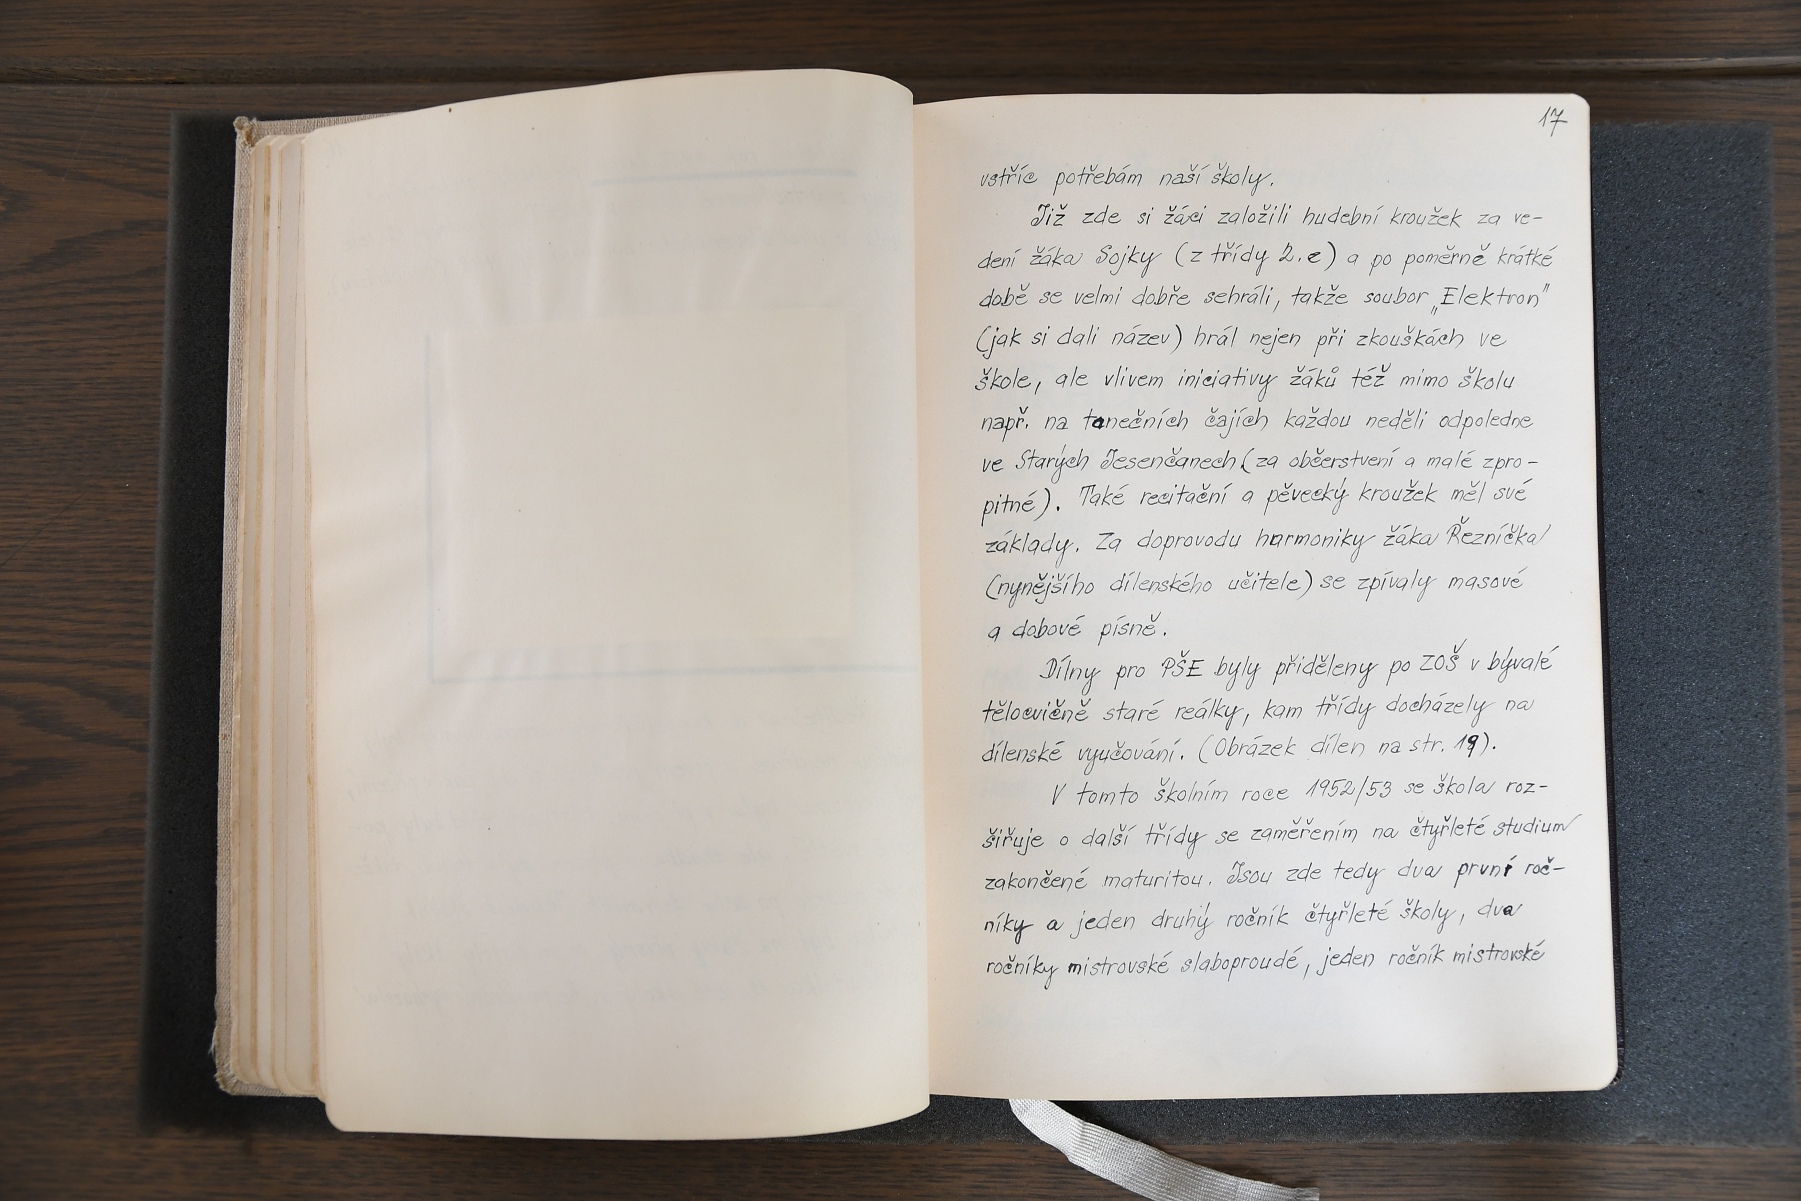 17
vstříc potřebám naší školy.
Již zde si žáci založili hudební kroužek za ve-
dení žáka Sojky (z třídy 2.c) a po poměrně krátké
době se velmi dobře sehráli, takže soubor „Elektron"
(jak si dali název) hrál nejen při zkouškách ve
škole, ale vlivem iniciativy žáků též mimo školu
např. na tanečních čajích každou neděli odpoledne
ve Starých Jesenčanech (za občerstvení a malé zpro-
pitné). Také recitační a pěvecký kroužek měl své
základy. Za doprovodu harmoniky žáka Řezníčka
(nynějšího dílenského učitele) se zpívaly masové
a dobové písně.
Dílny pro PŠE byly přiděleny po ZOŠ v bývalé
tělocvičně staré reálky, kam třídy docházely na
dílenské vyučování. (Obrázek dílen na str. 19).
V tomto školním roce 1952/53 se škola roz-
šiřuje o další třídy se zaměřením na čtyřleté studium
zakončené maturitou. Jsou zde tedy dva první roč-
níky a jeden druhý ročník čtyřleté školy, dva
ročníky mistrovské slaboproudé, jeden ročník mistrovské